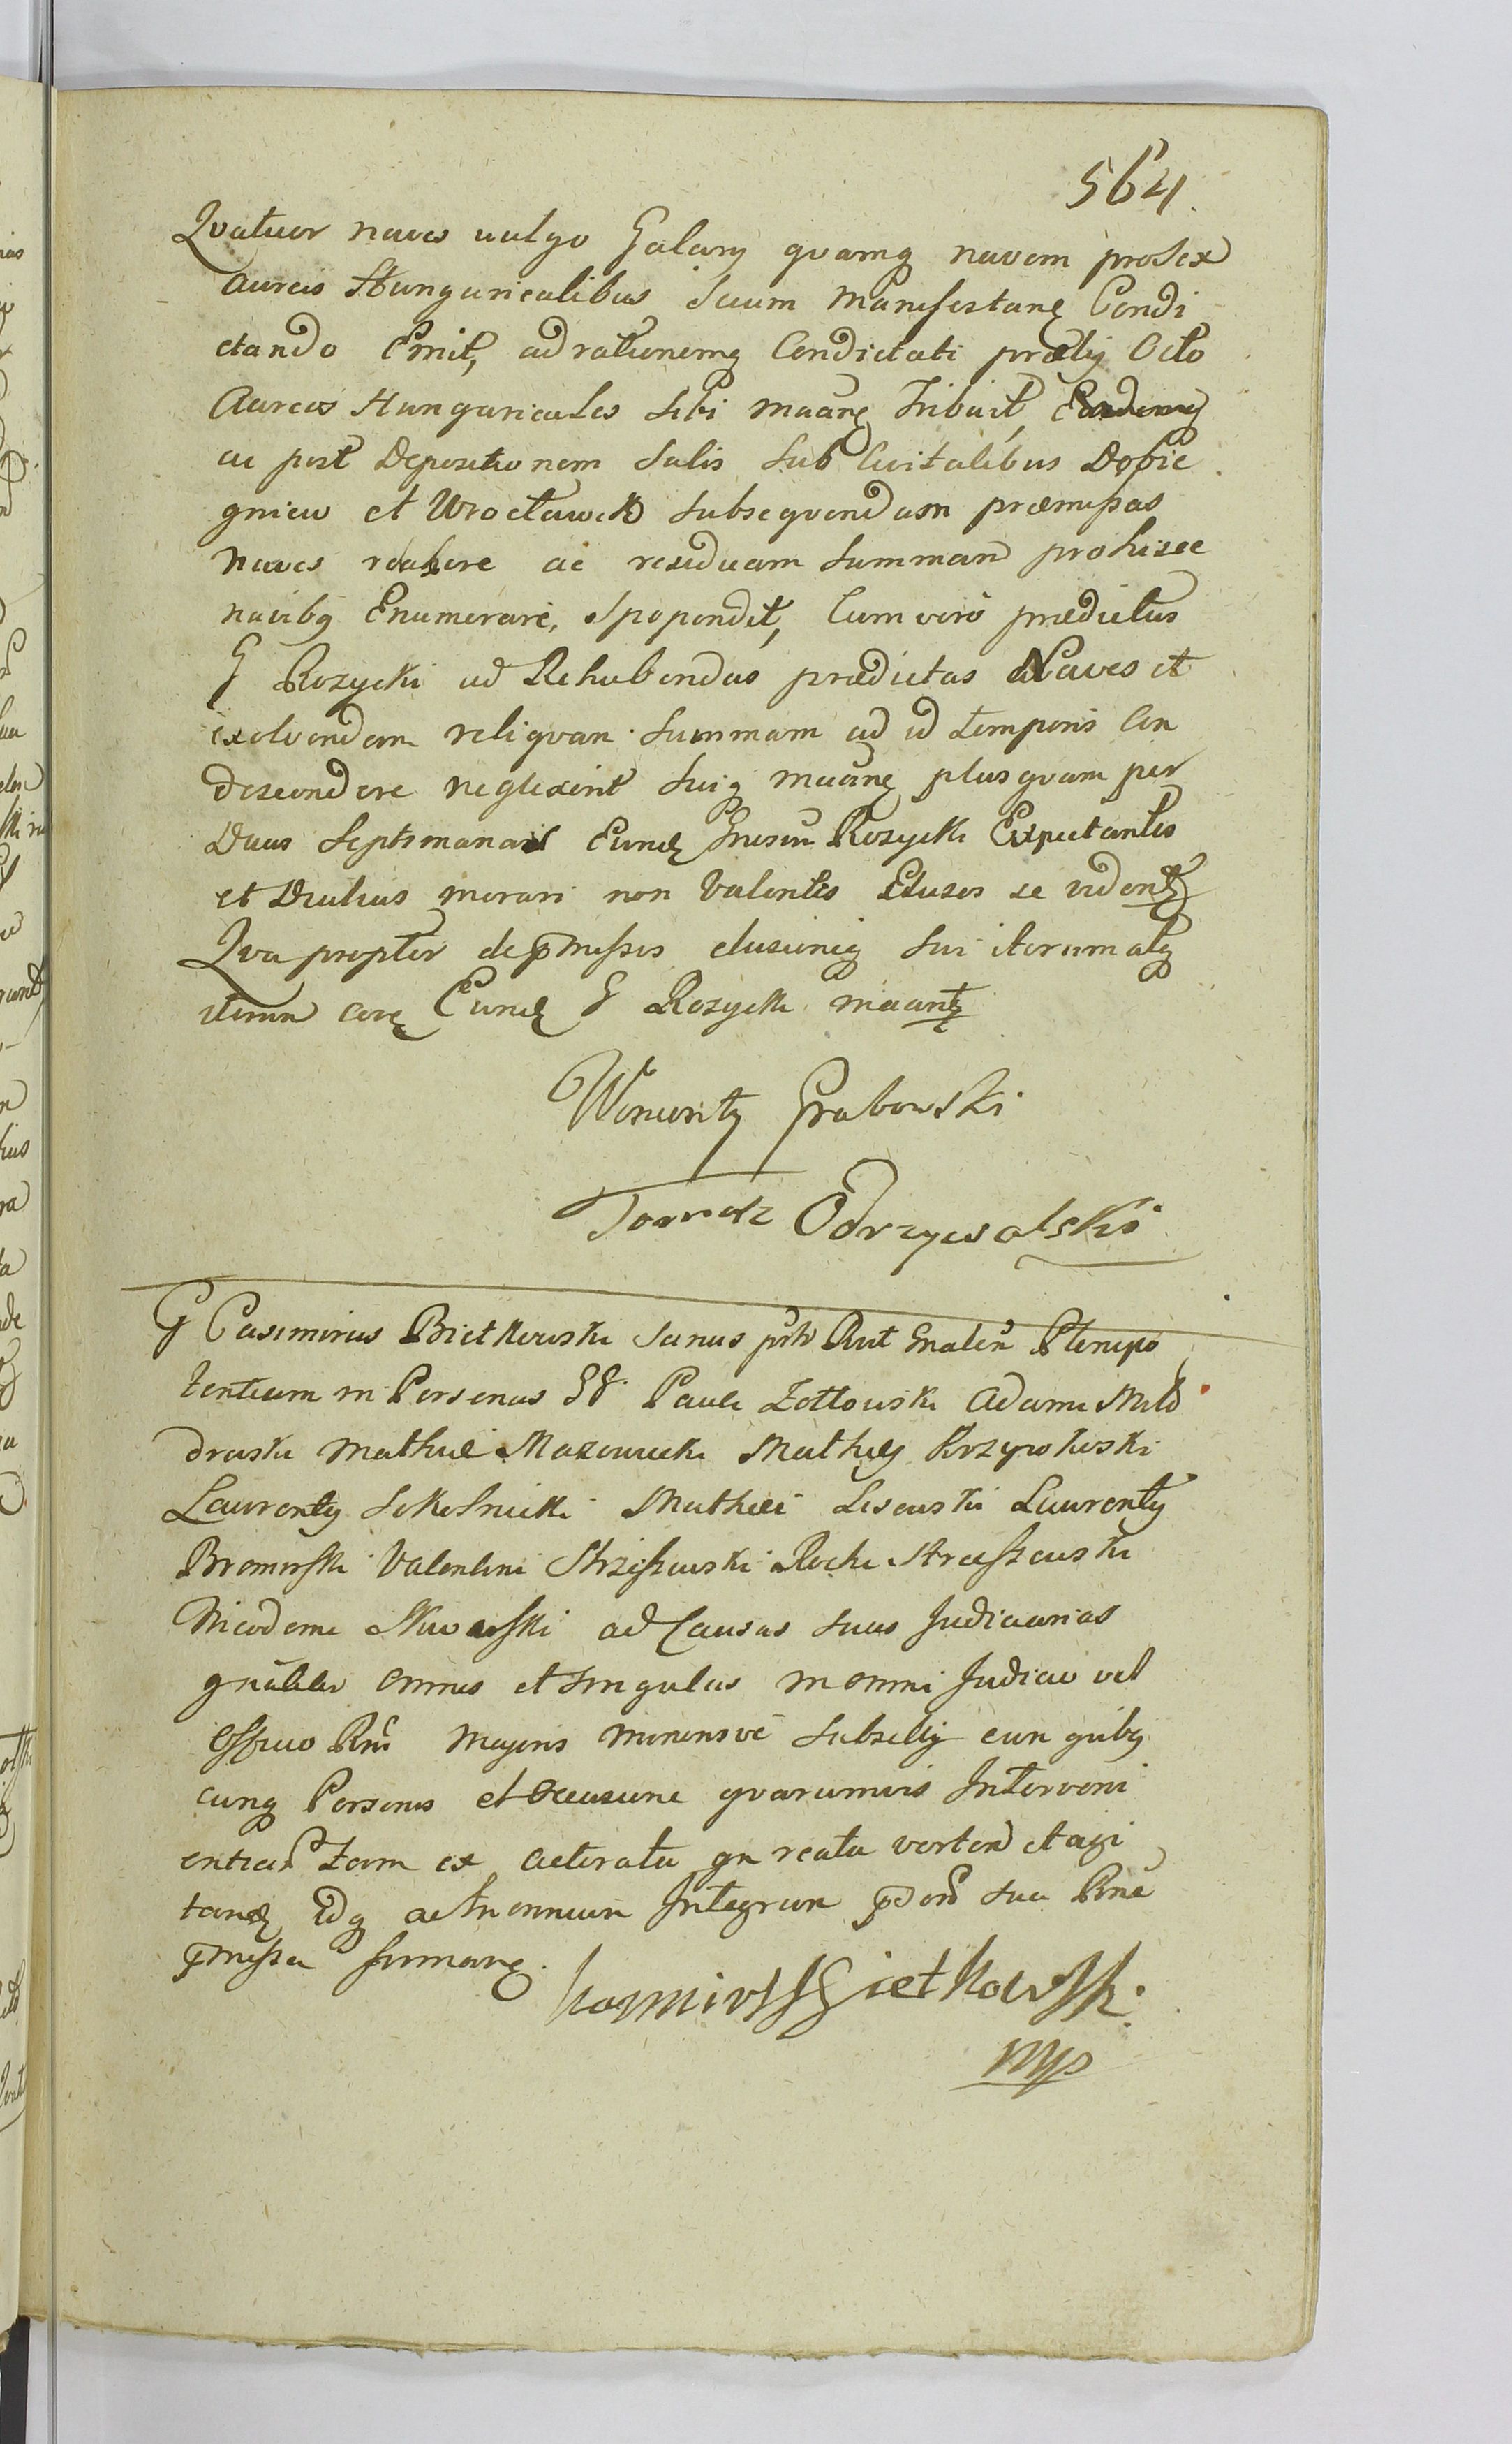 564.
Qvatuor naves vulgo Galary qvamq navem pro Sex
Aureis Hungaricalibus Secum Manifestanę Condi
ctando Emit, ad rationemq Condictati prætij Octo
Aureos Hungaricales Sibi maanę Tribuit, Easdemq
ac post Depositionem Salis Sub Civitatibus Dobie
gniew et Wrocławek Subseqvendam præmissas
Naves rehabere ac residuam Summam pro hisce
navibq Enumerare, Spopondit, Cum vero prædictus
G Rozycki ad Rehabendas prædictas Naves et
exolvendam reliqvam Summam ad id temporis Con
descendere neglexerit Suiq maanę plusqvam per
Duas Septimanas Eundę Gnosum Rozycki Expectantes
et Diutius morari non Valentes Elusos se vident
Qva propter de pmissis elusioneq Sui iterum atq
iterum corę Eundę G Rozycki maantę
Wincenty Grabowski
Tomasz Odrzywolski
G Casimirus Bietkowski Sanus prtr Rut Gnalem Plenipo
tentiam in Personas GG Pauli Żółtowski Adami Mło
draski Mathiæ Mazowiecki Mathiæ Krzywkoski
Laurentij Sokolnicki Mathiæ Lisowski Laurentij
Bromirski Valentini Strzeszewski Rochi Straszewski
Nicodemi Skwarski ad Causas suas Judiciarias
gnaliter Omnes et Singulas in omni Judicio vel
Officio Rni Majoris Minorisve Subsellij cum qvibq
cunq Personis et Occasione qvarumvis Interveni
entium tam ex Actoratu qn reatu verten et agi
tandę Idq ac in omnium Integrum pdom sua Pne
pmissa firmanę.
Kazmirz Bietkowski
mp